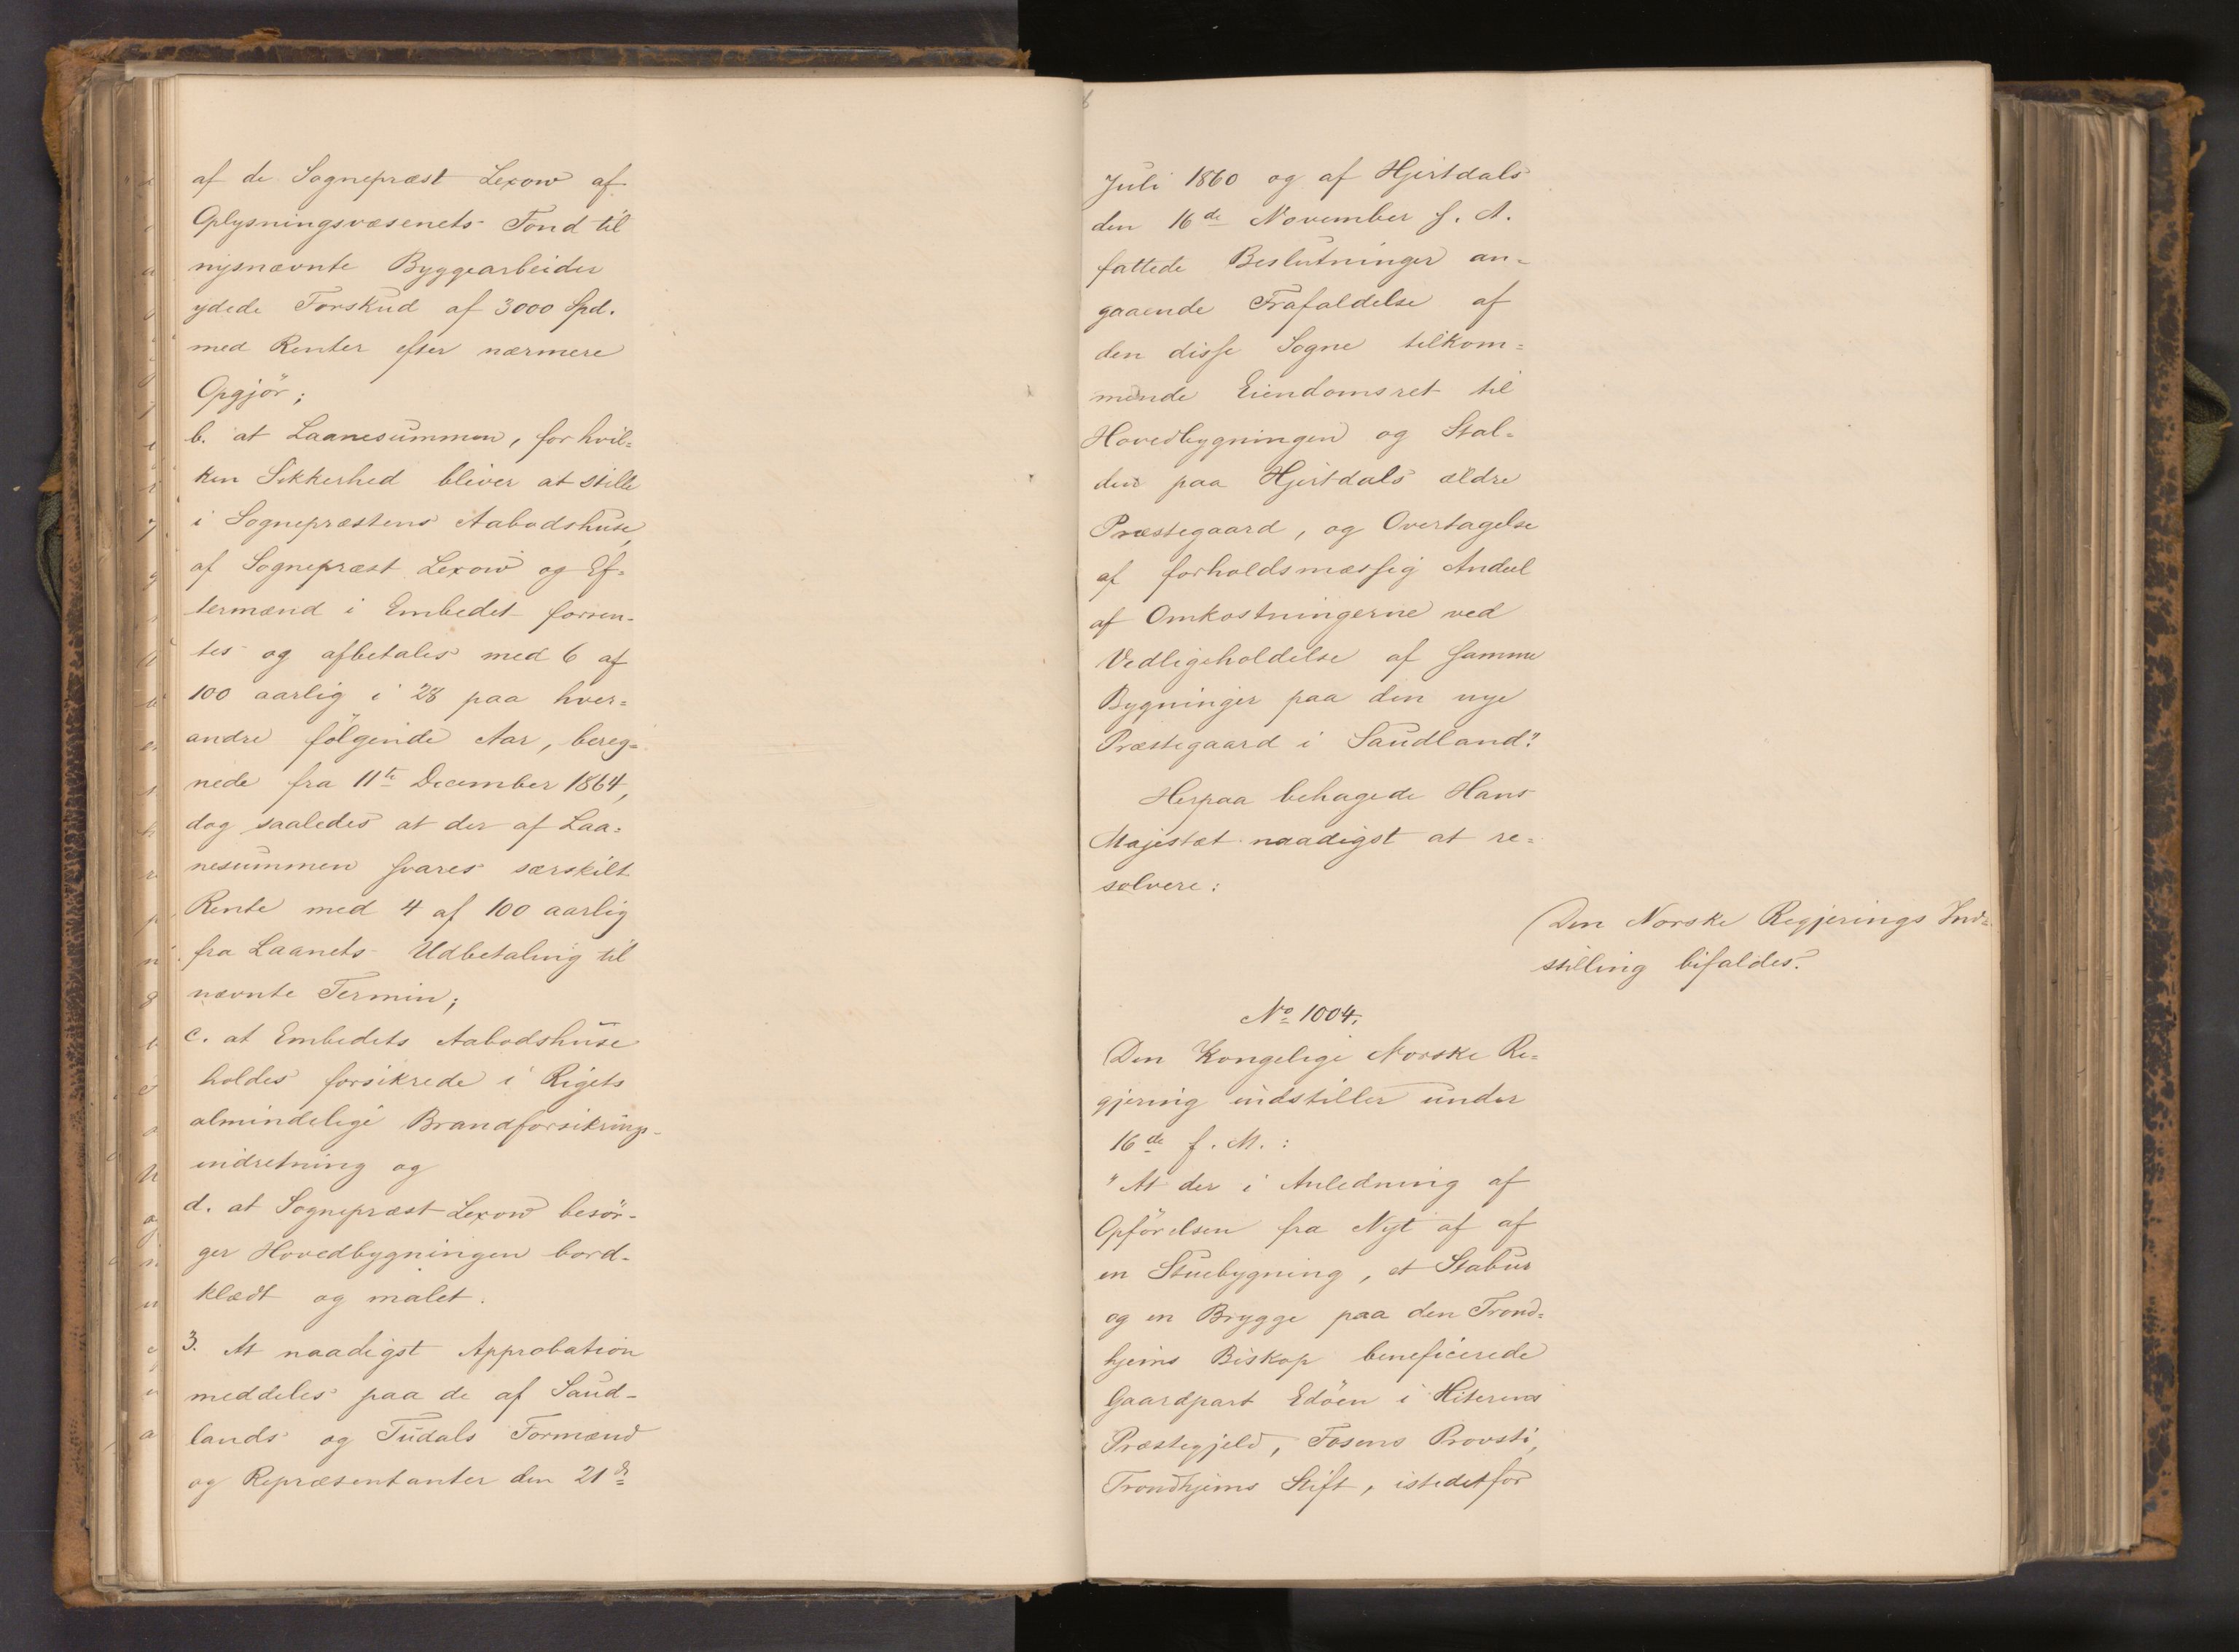 af de Sognepræst Lexow af
Oplysningsvæsenets Fond til
nysnævnte Byggearbeider
ydede Forskud af 3000 Spd.
med Renter efter nærmere
Opgjör;
b. at Laanesummen, for hvil=
ken Sikkerhed bliver at stille
i Sognepræstens Aabodshuse,
af Sognepræst Lexow og Ef=
termænd i Embedet forren-
tes og afbetales med 6 af
100 aarlig i 28 paa hver=
andre fölgende Aar, bereg=
nede fra 11te December 1864,
dog saaledes at der af Laa=
nesummen svares særskilt
Rente med 4 af 100 aarlig
fra Laanets Udbetaling til
nævnte Termin;
c. at Embedets Aabodshuse
holdes forsikrede i Rigets
almindelige Brandforsikrings-
indretning og
d. at Sognepræst Lexow besör-
ger Hovedbygningen bord-
klædt og malet.
3. At naadigst Approbation
meddeles paa de af Saud-
lands og Tudals Formænd
og Repræsentanter den 21de
Juli 1860 og af Hjertdals
den 16de November s. A.
fattede Beslutninger an=
gaaende Frafaldelse af
den disse Sogne tilkom=
mende Eiendomsret til
Hovedbygningen og Stal=
den paa Hjertdals ældre
Præstegaard, og Overtagelse
af forholdsmæssig Andeel
af Omkostningerne ved
Vedligeholdelse af samme
Bygninger paa den nye
Præstegaard i Saudland."
Herpaa behagede Hans
Majestæt naadigst at re=
solvere:
Den Norske Regjerings Ind=
stilling bifaldes.
No 1004.
Den Kongelige Norske Re=
gjering indstiller under
16de f. M.:
"At der i Anledning af
Opförelsen fra Nyt af af
en Stuebygning, et Stabur
og en Brygge paa den Trond=
hjems Biskop beneficerede
Gaardpart Edöen i Hiterens
Præstegjeld, Fosens Provsti,
Trondhjems Stift, istedetfor